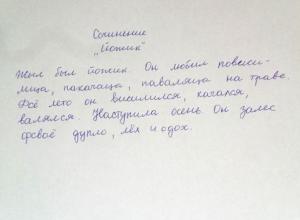 Сочинение
„Йожик"
Жыл был йожик. Он любил повиси-
лица, пакачаца, паваляца на траве.
Фсё лето он висилился, качался,
валялся. Наступила осень. Он залес
фсваё дупло, лёх и одох.